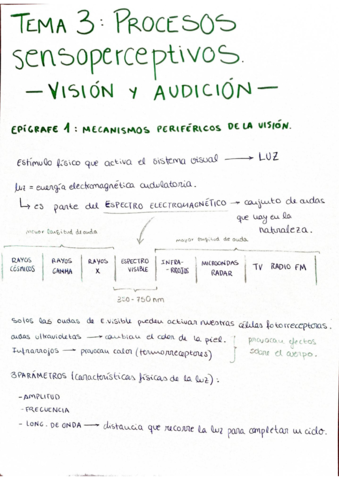 TEMA 3: PROCESOS
sensoperceptivos.
— VISIÓN Y AUDICIÓN —
EPÍGRAFE 1: MECANISMOS PERIFÉRICOS DE LA VISIÓN.
Estímulo físico que activa el sistema visual → LUZ
luz = energía electromagnética ondulatoria.
↳ es parte del ESPECTRO ELECTROMAGNÉTICO → conjunto de ondas
que hay en la
naturaleza.
menor longitud de onda
mayor longitud de onda
RAYOS CÓSMICOS | RAYOS GAMMA | RAYOS X | ESPECTRO VISIBLE | INFRA-RROJOS | MICROONDAS RADAR | TV RADIO FM
-750 nm
Solos las ondas de E.visible pueden activar nuestras células fotorreceptoras.
ondas ultravioletas → cambian el color de la piel.
Infrarrojos → provocan calor (termorreceptores)
provocan efectos
sobre el cuerpo.
3 PARÁMETROS (características físicas de la luz):
- AMPLITUD
- FRECUENCIA
- LONG. DE ONDA → distancia que recorre la luz para completar un ciclo.